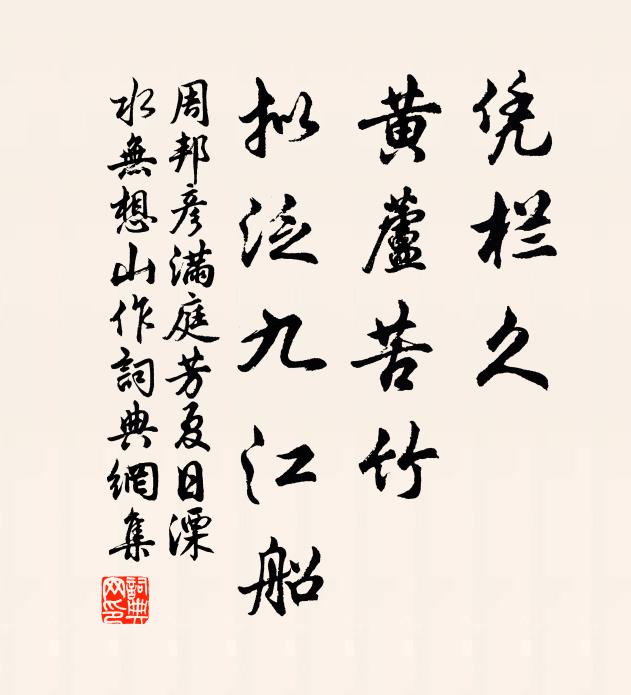 凭栏久
黄蘆苦竹
拟泛九江船
周邦彦满庭芳夏日溧
水無想山作詞典網集
詞典网印